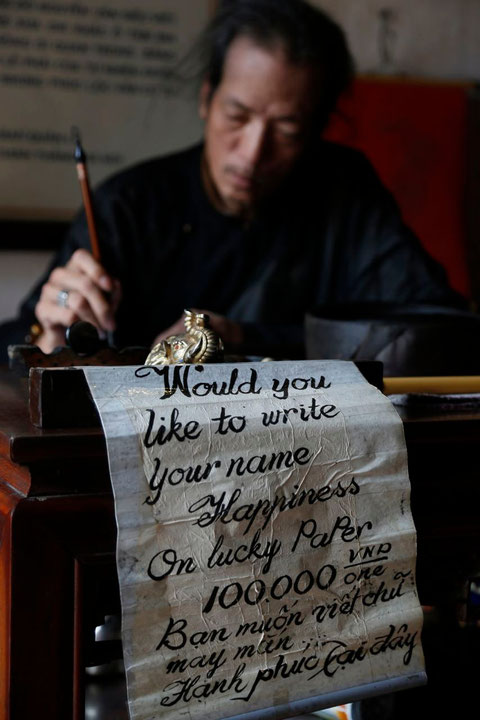 Would you
like to write
Your name
Happiness
On lucky PaPer
100.000 VND
one
Bạn muốn viết chữ
may mắn ...
Hạnh phuc Tại đây